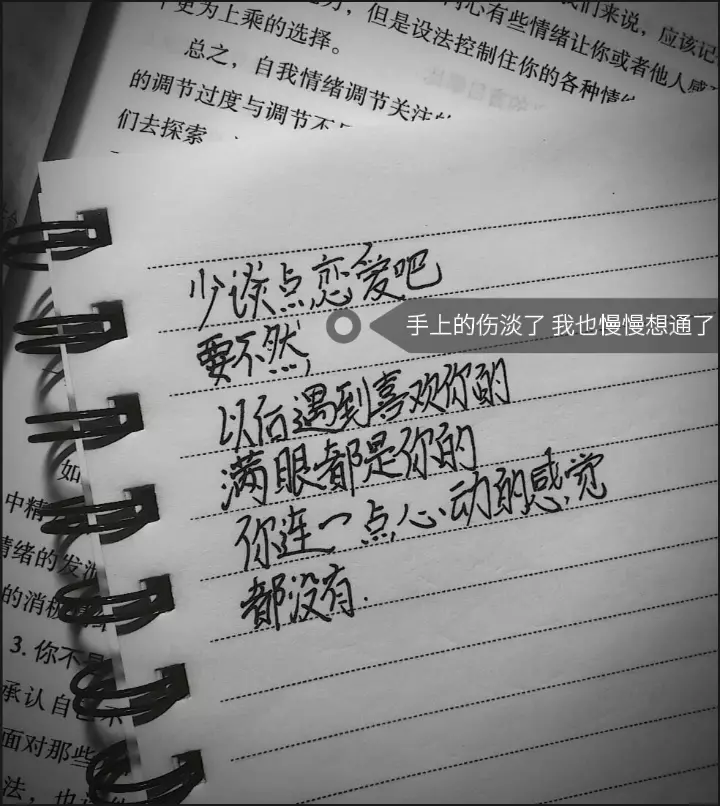 更为上乘的选择。
但是设法控制住你的各种情
心有些情绪让你或者他人感
们来说，应该记
总之，自我情绪调节关注
的调节过度与调节不
们去探索
少谈点恋爱吧
手上的伤淡了 我也慢慢想通了
要不然，
以后遇到喜欢你的
满眼都是你的
你连一点心动的感觉
都没有.
如
中精
情绪的发
的消极情绪
3. 你不是
承认自己
面对那些
法，也